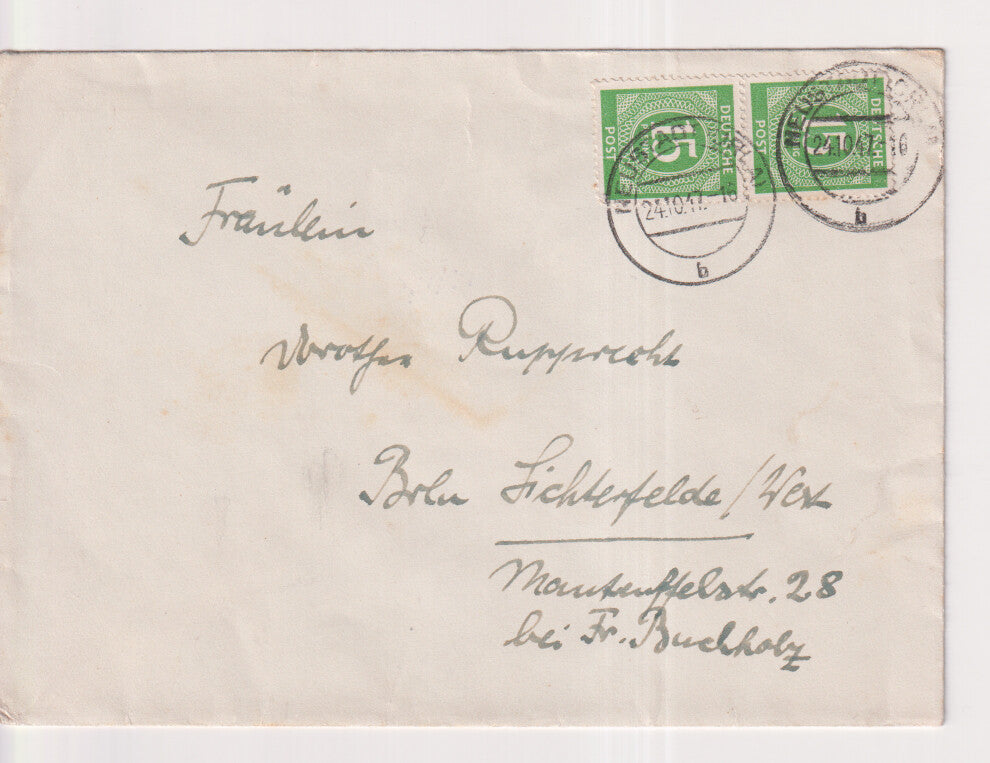 DEUTSCHE
POST
15
DEUTSCHE
POST
15
24.10.47.-16
b
24.10.47.-16
b
Fräulein
Dorothea Rupprecht
Brln Lichterfelde/West
Manteuffelstr. 28
bei Fr. Buchholz